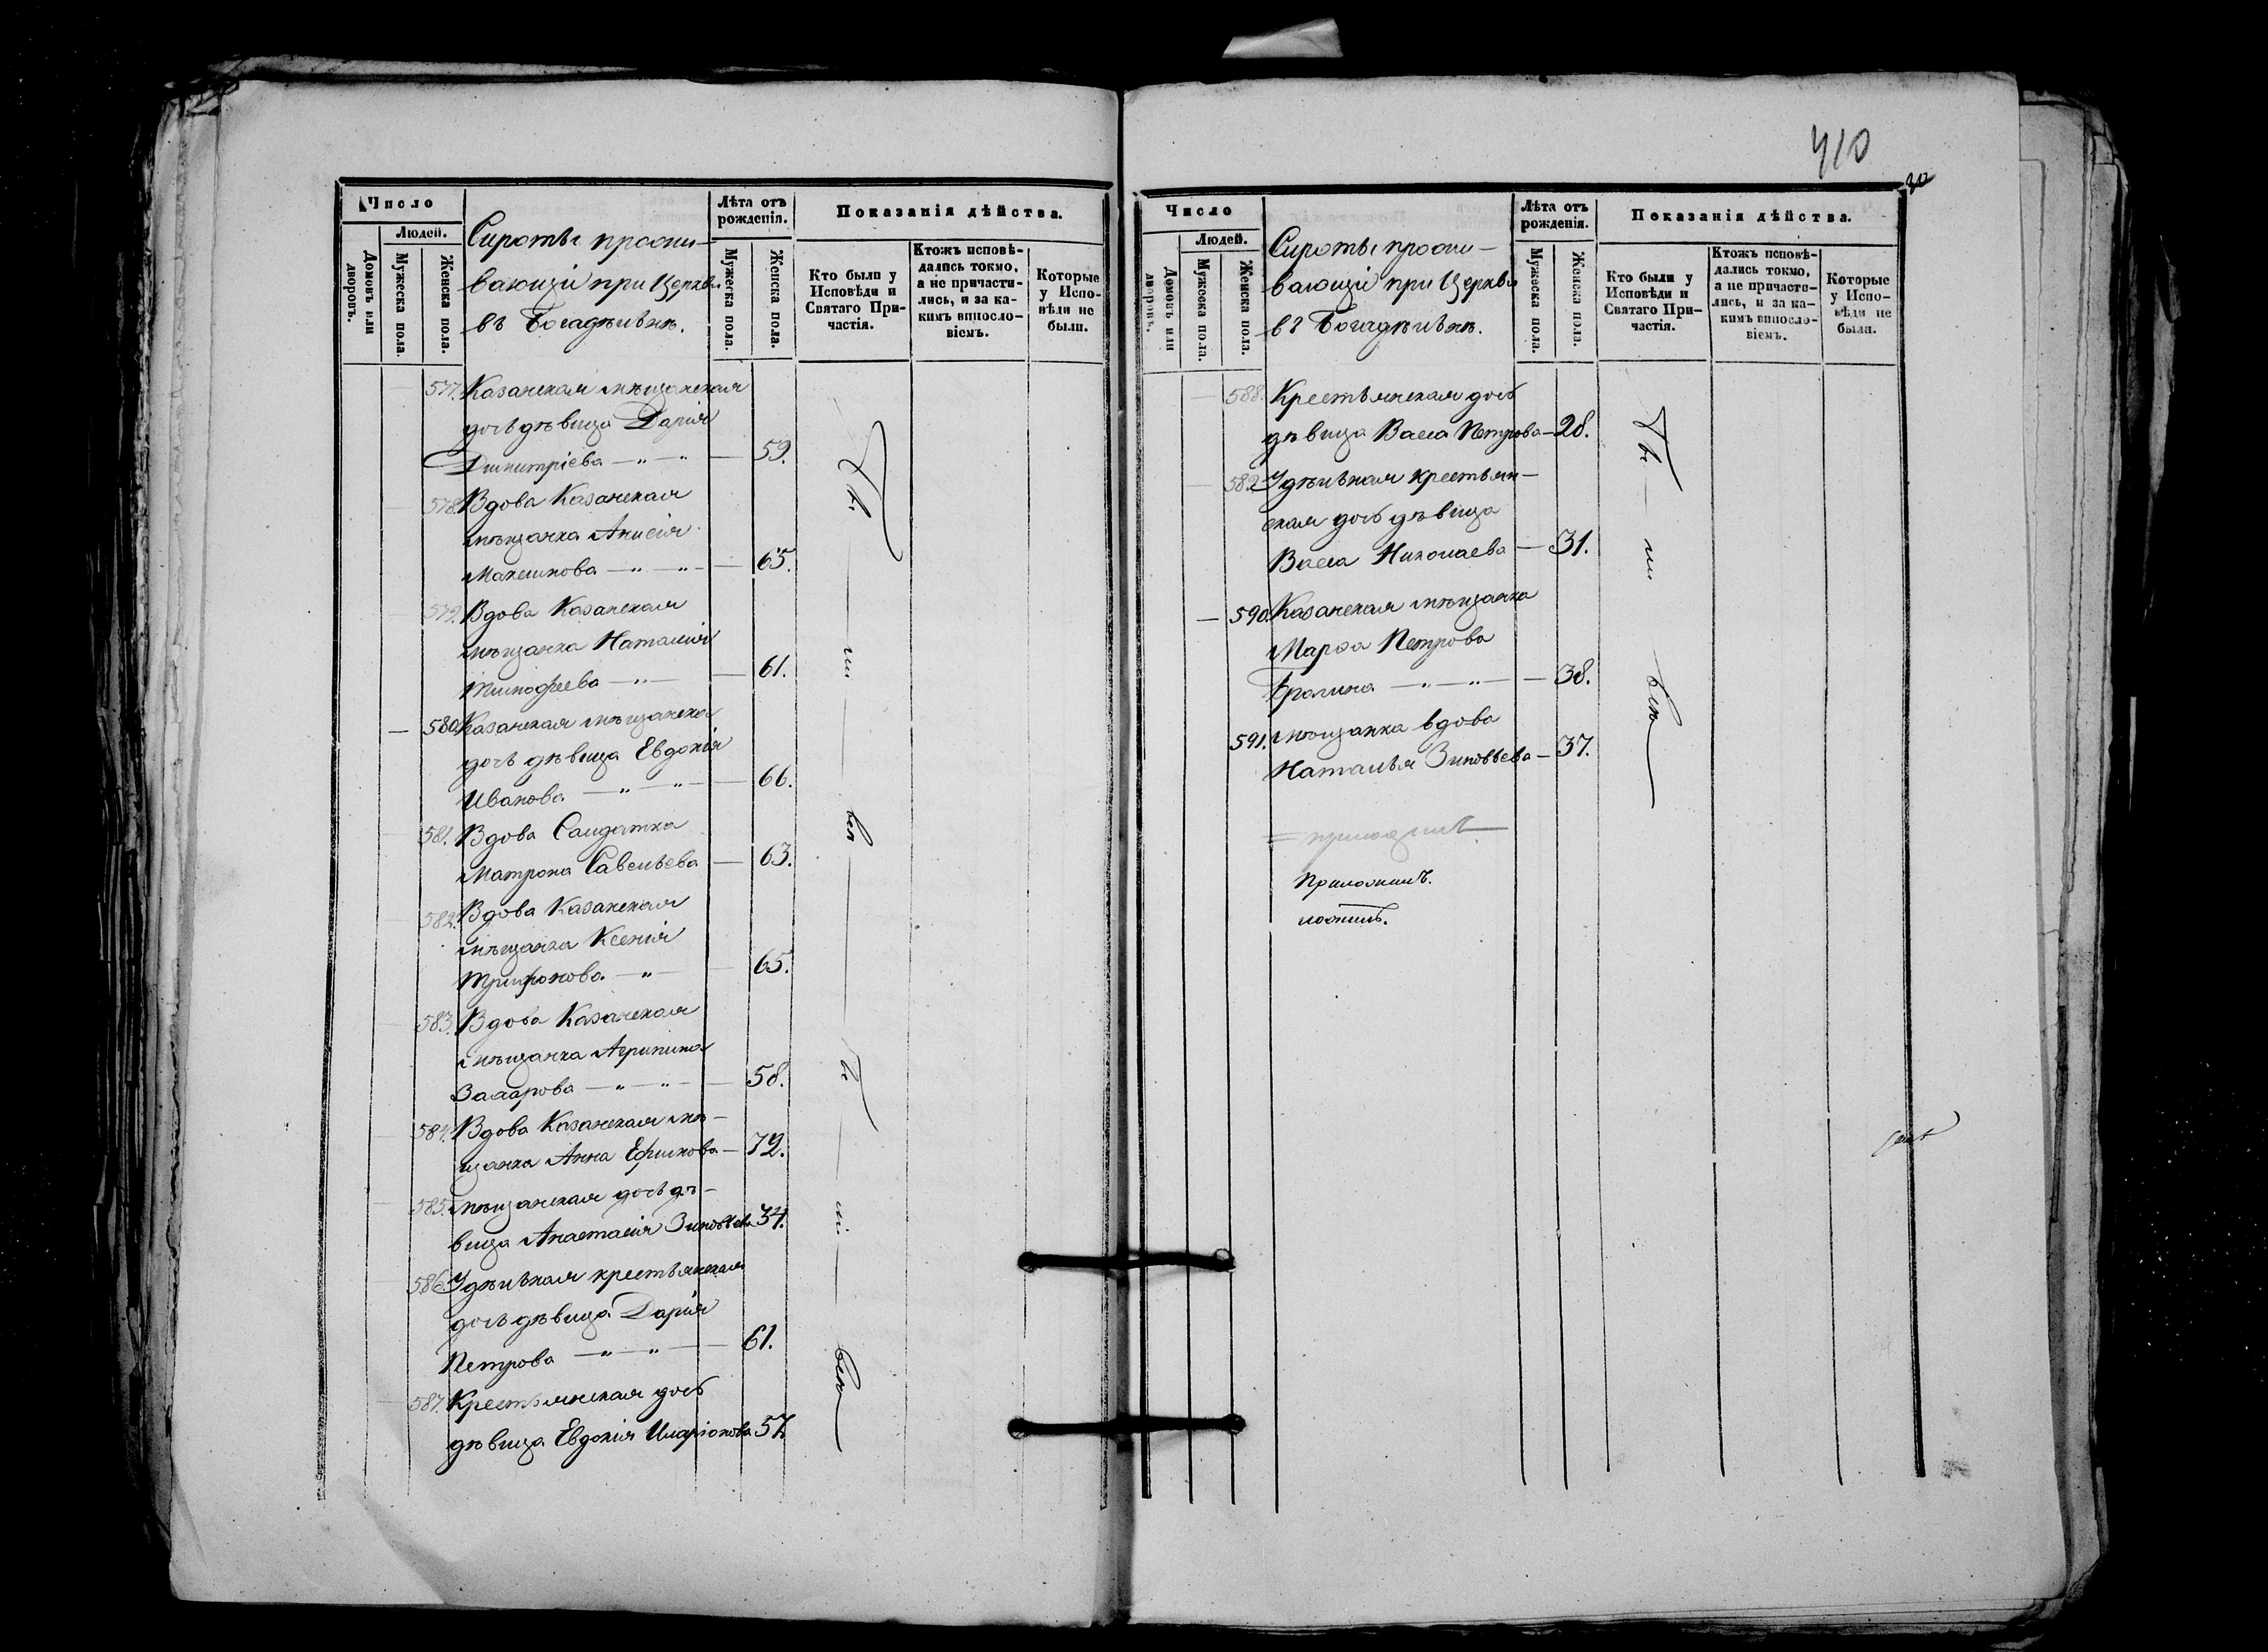 Число
Людей.
Домовъ или дворовъ.
Мужеска пола.
Женска пола.
Сироты прожи-
вающіи при Церкви
въ Богадѣльнѣ.
Лѣта отъ рожденія.
Мужеска пола.
Женска пола.
Показанія дѣйства.
Кто были у Исповѣди и Святаго При-
частія.
Ктожъ исповѣ-
дались токмо,
а не причасти-
лись, и за ка-
кимъ винosло-
віемъ.
Которые
у Испо-
вѣди не
были.
577. Казанская мѣщанская
дочь дѣвица Дарія
Димитріева — „ — „ — 59.
578. Вдова Казанская
мѣщанка Анисія
Максимова — „ — „ — 65.
579. Вдова Казанская
мѣщанка Наталія
Тимофеева — „ — 61.
— 580. Казанская мѣщанска
дочь дѣвица Евдокія
Иванова — „ — „ — 66.
581. Вдова Солдатка
Матрона Савельева — 63.
582. Вдова Казанская
мѣщанка Ксенія
Трифонова — „ — 65.
583. Вдова Казанская
мѣщанка Агрипина
Захарова — „ — „ — 58.
584. Вдова Казанская мѣ-
щанка Анна Ефимова — 72.
585. мѣщанская дочь дѣ-
вица Анастасія Зиновьева 34.
586. Удѣльная крестьянская
дочь дѣвица Дарія
Петрова — „ — „ — 61.
587. Крестьянская дочь
дѣвица Евдокія Иларіонова 57.
410
Число
Людей.
Домовъ или дворовъ.
Мужеска пола.
Женска пола.
Сироты прожи-
вающіи при Церкви
въ Богадѣльнѣ.
Лѣта отъ рожденія.
Мужеска пола.
Женска пола.
Показанія дѣйства.
Кто были у
Исповѣди и
Святаго При-
частія.
Ктожъ исповѣ-
дались токмо,
а не причасти-
лись, и за ка-
кимъ винosло-
віемъ.
Которые
у Испо-
вѣди не
были.
588. Крестьянская дочь
дѣвица Васса Петрова — 28.
589. Удѣльная крестьян-
ская дочь дѣвица
Васса Николаева — 31.
— 590. Казанская мѣщанка
Марѳа Петрова
— „ — „ — 38.
591. мѣщанка вдова
Наталья Зиновьева — 37.
Приложилъ.
ложилъ.